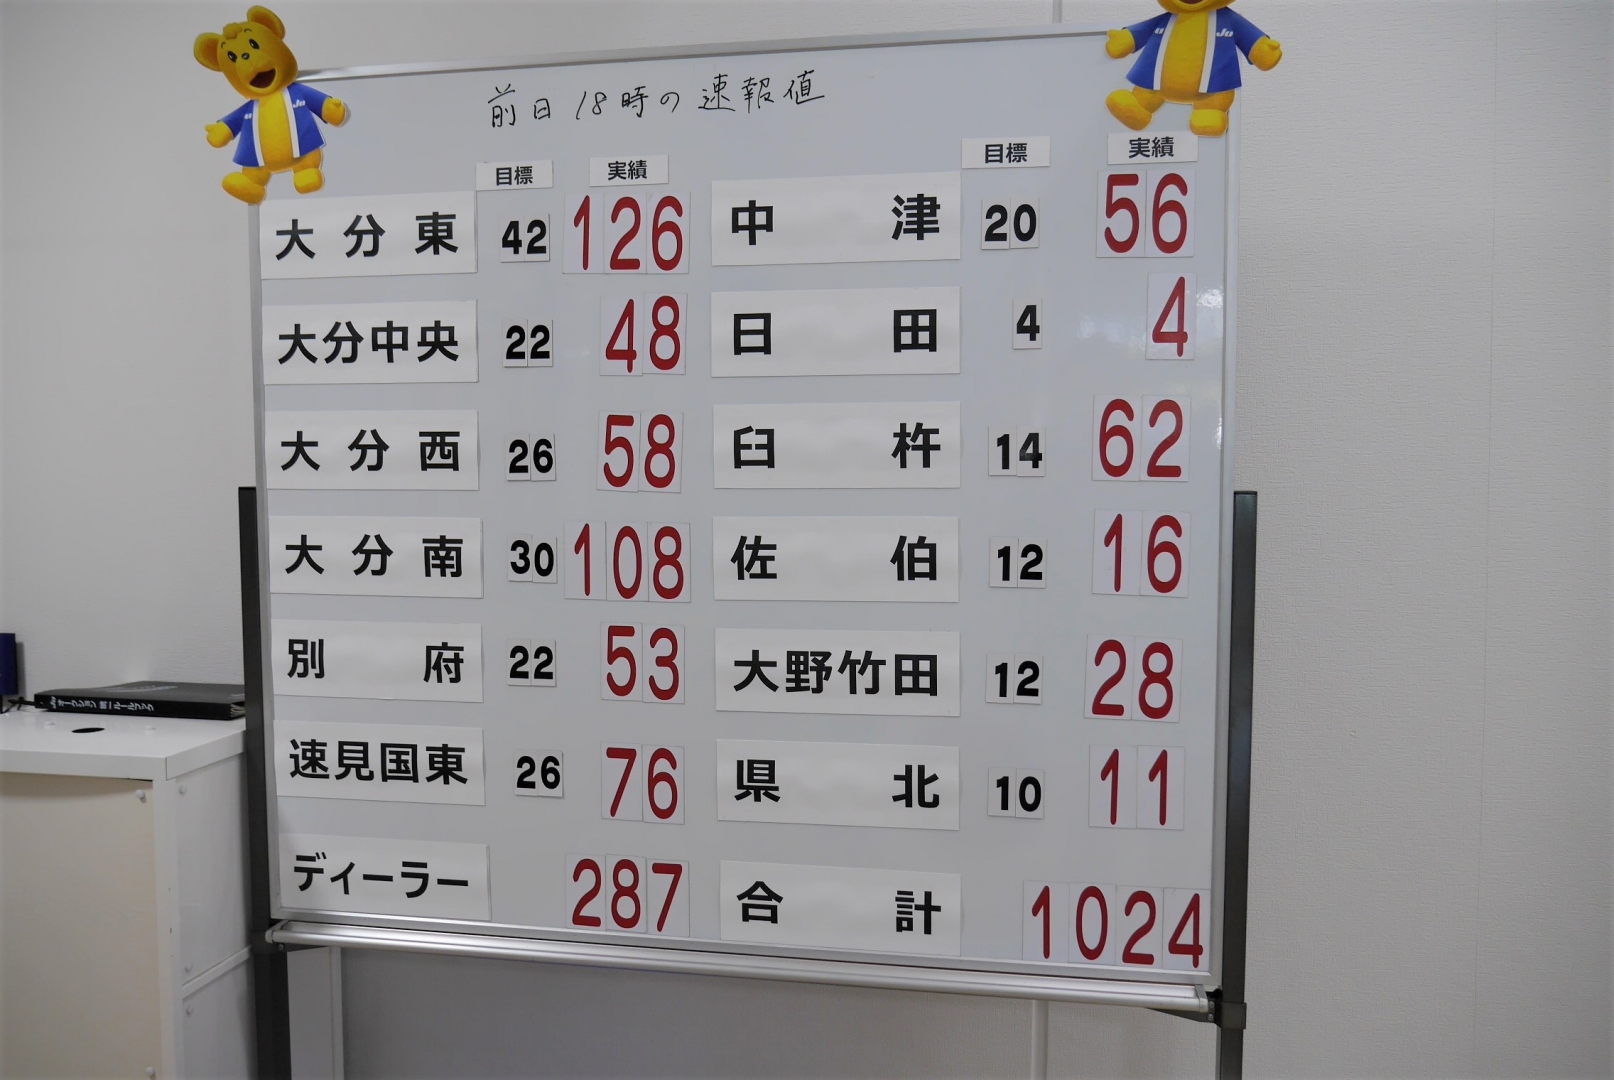 前日18時の速報値
目標 実績 目標 実績
大分東 42 126 中津 20 56
大分中央 22 48 日田 4 4
大分西 26 58 臼杵 14 62
大分南 30 108 佐伯 12 16
別府 22 53 大野竹田 12 28
速見国東 26 76 県北 10 11
ディーラー 287 合計 1024